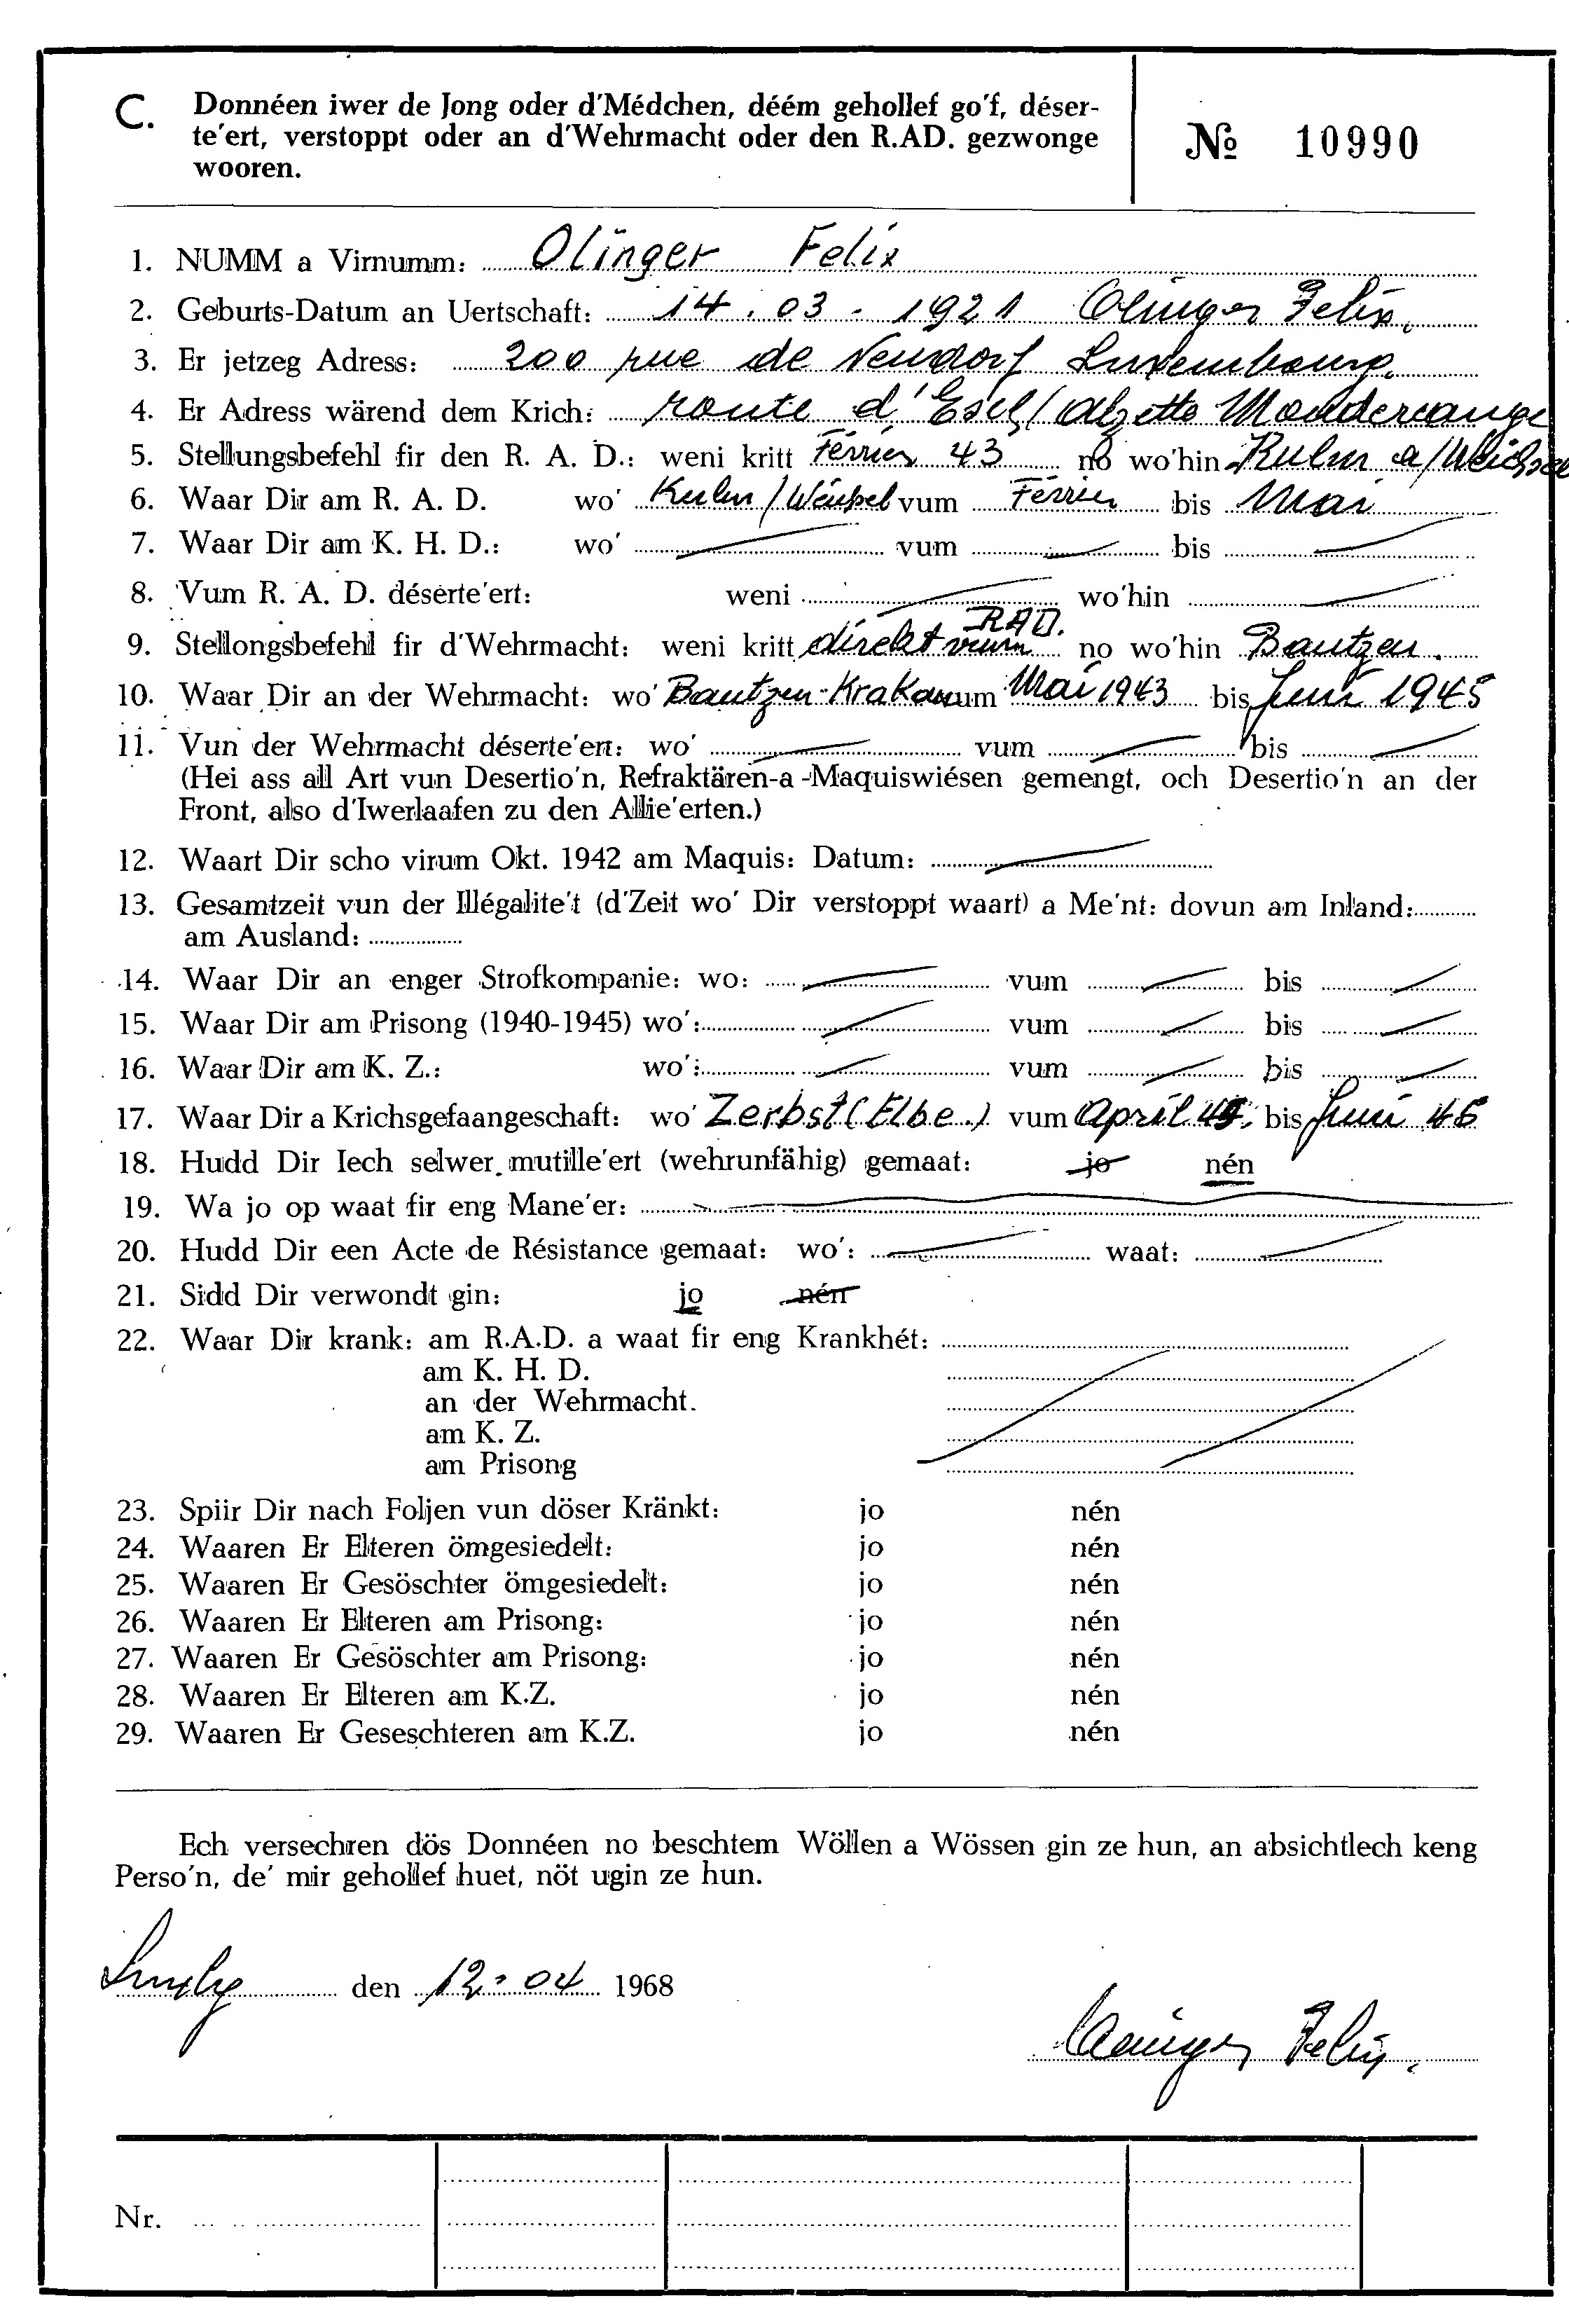 C. Donnéen iwer de Jong oder d'Médchen, déém gehollef go'f, déser-
te'ert, verstoppt oder an d'Wehrmacht oder den R.AD. gezwonge
wooren.
№ 10990
1. NUMM a Virnumm: Olinger Felix
2. Geburts-Datum an Uertschaft: 14.03-1921 Olinger Felix.
3. Er jetzeg Adress: 200 rue de Neudorf Luxembourg.
4. Er Adress wärend dem Krich: route d'Esch/Alzette Mondercange
5. Stellungsbefehl fir den R. A. D.: weni kritt Février 43 no wo'hin Kulm a/Weichsel
6. Waar Dir am R. A. D. wo' Kulm/Weichsel vum Février bis Mai
7. Waar Dir am K. H. D.: wo' vum bis
8. Vum R. A. D. déserte'ert: weni wo'hin
9. Stellongsbefehl fir d'Wehrmacht: weni kritt direkt vum RAD. no wo'hin Bautzen.
10. Waar Dir an der Wehrmacht: wo' Bautzen-Krakau vum Mai 1943 bis Juni 1945
11. Vun der Wehrmacht déserte'ert: wo' vum bis
(Hei ass all Art vun Desertio'n, Refraktären-a-Maquiswiésen gemengt, och Desertio'n an der
Front, also d'Iwerlaafen zu den Allie'erten.)
12. Waart Dir scho virum Okt. 1942 am Maquis: Datum:
13. Gesamtzeit vun der Illégalite't (d'Zeit wo' Dir verstoppt waart) a Me'nt: dovun am Inland:
am Ausland:
14. Waar Dir an enger Strofkompanie: wo: vum bis
15. Waar Dir am Prisong (1940-1945) wo': vum bis
16. Waar Dir am K. Z.: wo': vum bis
17. Waar Dir a Krichsgefaangeschaft: wo' Zerbst (Elbe.) vum April 45. bis Juni 45
18. Hudd Dir Iech selwer mutille'ert (wehrunfähig) gemaat: jo nén
19. Wa jo op waat fir eng Mane'er:
20. Hudd Dir een Acte de Résistance gemaat: wo': waat:
21. Sidd Dir verwondt gin: jo nén
22. Waar Dir krank: am R.A.D. a waat fir eng Krankhét:
am K. H. D.
an der Wehrmacht.
am K. Z.
am Prisong
23. Spiir Dir nach Foljen vun döser Kränkt: jo nén
24. Waaren Er Elteren ömgesiedelt: jo nén
25. Waaren Er Gesöschter ömgesiedelt: jo nén
26. Waaren Er Elteren am Prisong: jo nén
27. Waaren Er Gesöschter am Prisong: jo nén
28. Waaren Er Elteren am K.Z. jo nén
29. Waaren Er Geseschteren am K.Z. jo nén
Ech versechren dös Donnéen no beschtem Wöllen a Wössen gin ze hun, an absichtlech keng
Perso'n, de' mir gehollef huet, nöt ugin ze hun.
Luxbg den 12-04 1968
Olinger Felix.
Nr.